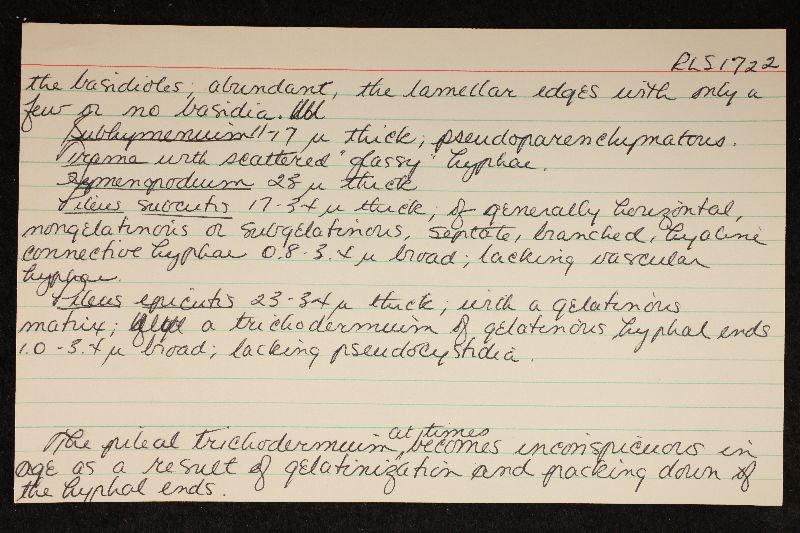 RLS 1722
the basidioles; abundant, the lamellar edges with only a
few or no basidia.
Subhymenium 11-17 µ thick; pseudoparenchymatous.
Trama with scattered "glassy" hyphae.
Hymenopodium 28 µ thick
Pileus subcutis 17-34 µ thick; of generally horizontal,
nongelatinous or subgelatinous, septate, branched, hyaline
connective hyphae 0.8-3.4 µ broad; lacking vascular
hyphae.
Pileus epicutis 23-34 µ thick; with a gelatinous
matrix; a trichodermium of gelatinous hyphal ends
1.0-3.4 µ broad; lacking pseudocystidia.
The pileal trichodermium at times becomes inconspicuous in
age as a result of gelatinization and packing down of
the hyphal ends.